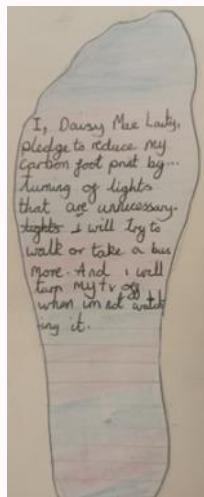 I, Daisy Mae
pledge to reduce my
carbon foot prat by...
turning of lights
that are unnecessary.
I will try to
walk or take a bus
more. And i will
turn my tv off
when im not watch
ing it.